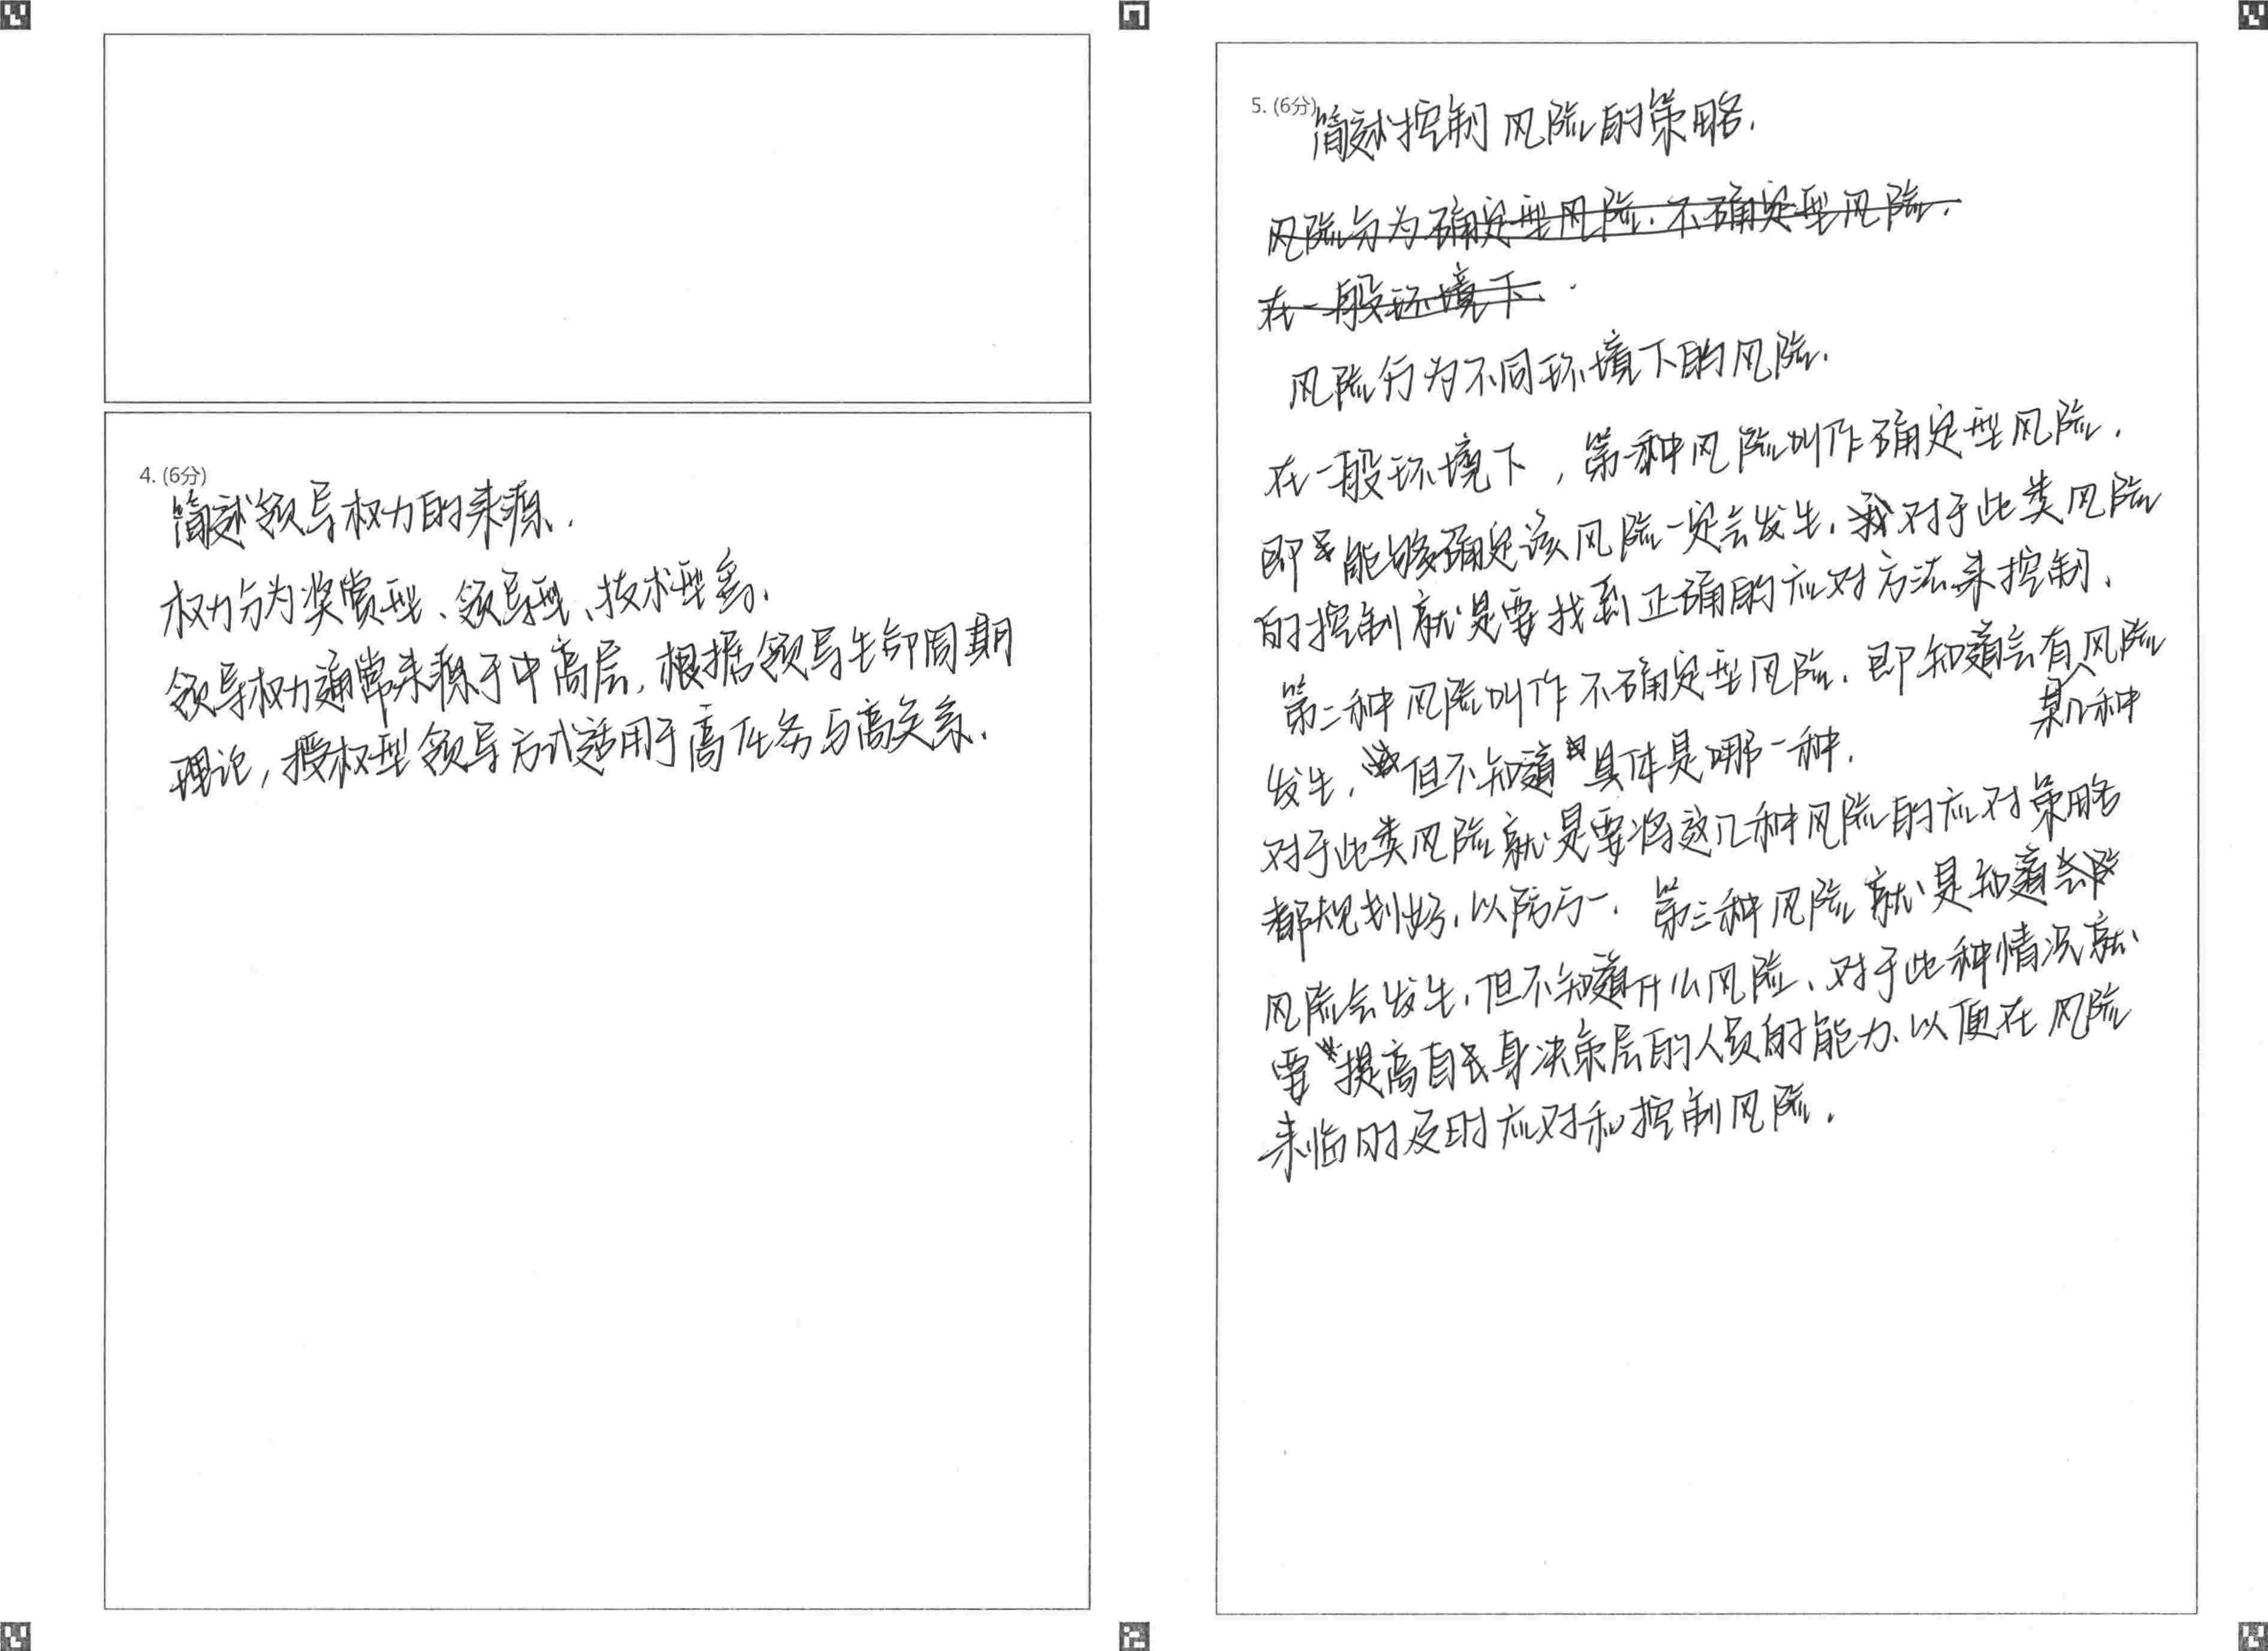 4. (6分)
简述领导权力的来源.
权力分为奖赏型、领导型、技术型等.
领导权力通常来源于中高层, 根据领导生命周期
理论, 授权型领导方式适用于高任务与高关系.
5. (6分)
简述控制风险的策略.
风险分为确定型风险. 不确定型风险.
在一般环境下.
风险分为不同环境下的风险.
在一般环境下, 第一种风险叫作确定型风险.
即能够确定该风险一定会发生, 对于此类风险
的控制就是要找到正确的应对方法来控制.
第二种风险叫作不确定型风险. 即知道会有某几种风险
发生, 但不知道具体是哪一种.
对于此类风险就是要将这几种风险的应对策略
都规划好, 以防万一. 第三种风险就是知道
风险会发生, 但不知道什么风险、对于此种情况就
要提高自身决策层的人员的能力、以便在风险
来临时及时应对和控制风险.